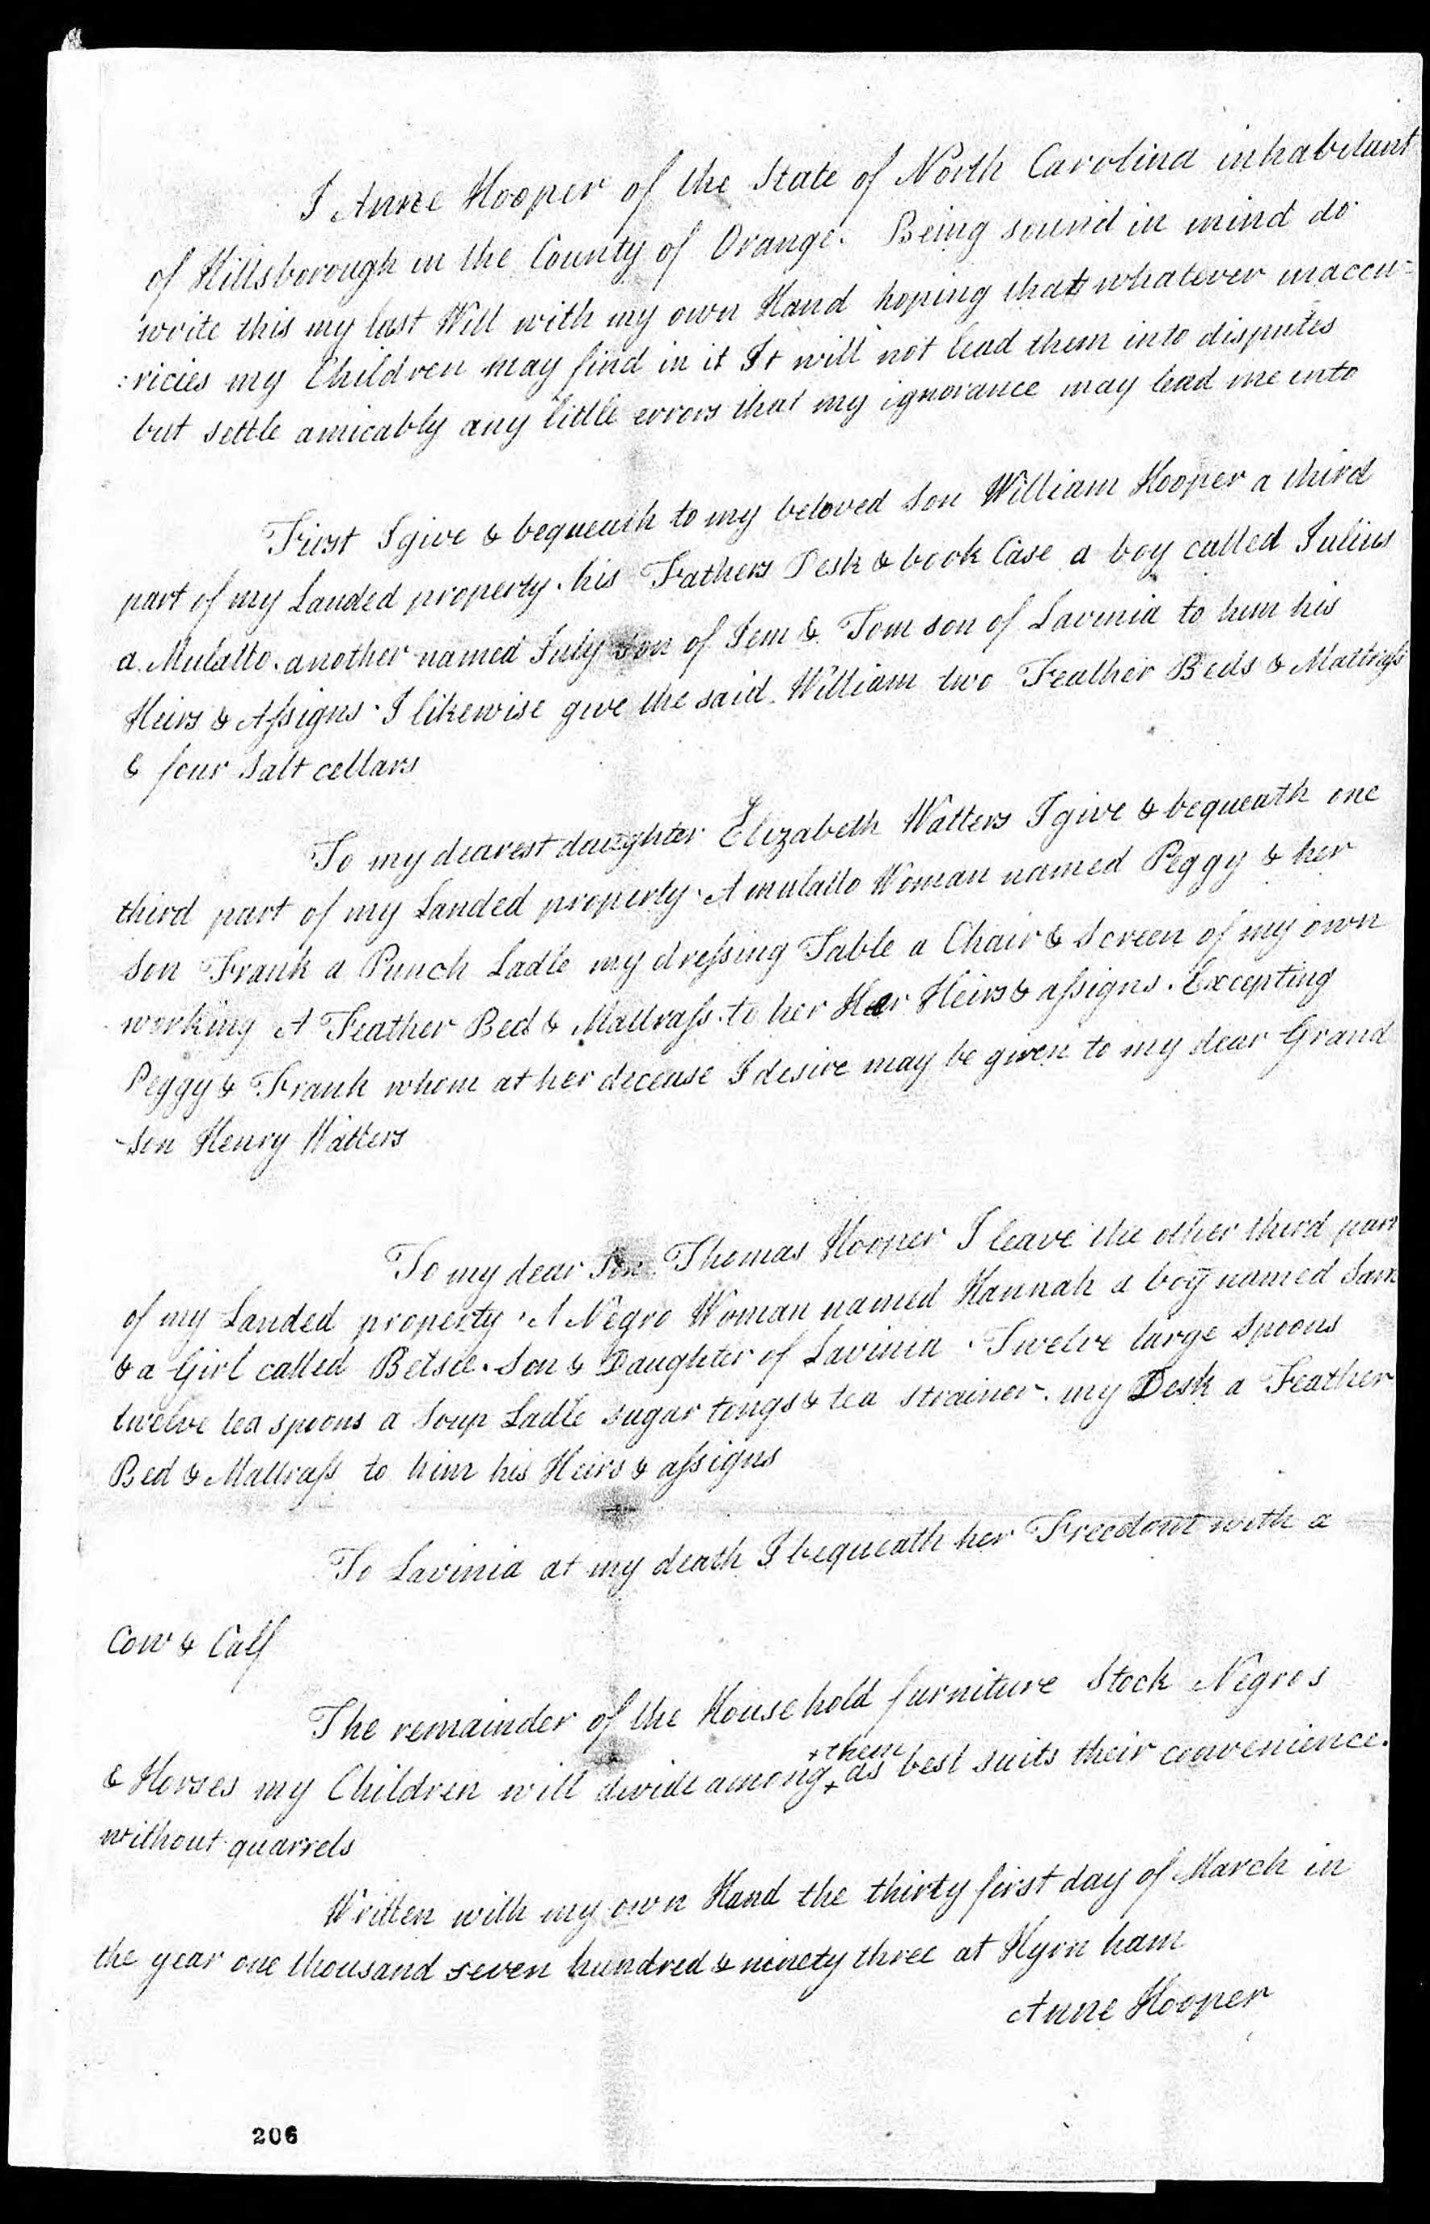 I Anne Hooper of the State of North Carolina inhabitant
of Hillsborough in the County of Orange. Being sound in mind do
write this my last Will with my own Hand hoping that whatever inaccu=
:ricies my Children may find in it It will not lead them into disputes
but settle amicably any little errors that my ignorance may lead me into
First I give & bequeath to my beloved Son William Hooper a third
part of my Landed property. his Fathers Desk & book Case a boy called Julius
a Mulatto. another named July son of Jem & Tom son of Lavinia to him his
Heirs & Assigns. I likewise give the said William two Feather Beds & Mattrass
& four Salt cellars
To my dearest daughter Elizabeth Watters I give & bequeath one
third part of my Landed property. A mulatto Woman named Peggy & her
Son Frank a Punch Ladle my dressing Table a Chair & Screen of my own
working A Feather Bed & Mattrass. to her Her Heirs & assigns. Excepting
Peggy & Frank whom at her decease I desire may be given to my dear Grand
-Son Henry Watters
To my dear Son Thomas Hooper I leave the other third part
of my Landed property. A Negro Woman named Hannah a boy named Sam
& a Girl called Betsee. Son & Daughter of Lavinia. Twelve large Spoons
twelve tea spoons a Soup Ladle sugar tongs & tea strainer. my Desk a Feather
Bed & Mattrass to him his Heirs & assigns
To Lavinia at my death I bequeath her Freedom with a
Cow & Calf
The remainder of the Household furniture Stock Negros
+them
& Horses my Children will divide among + as best suits their convenience.
without quarrels
Written with my own Hand the thirty first day of March in
the year one thousand seven hundred & ninety three at Hyrn ham
Anne Hooper
206